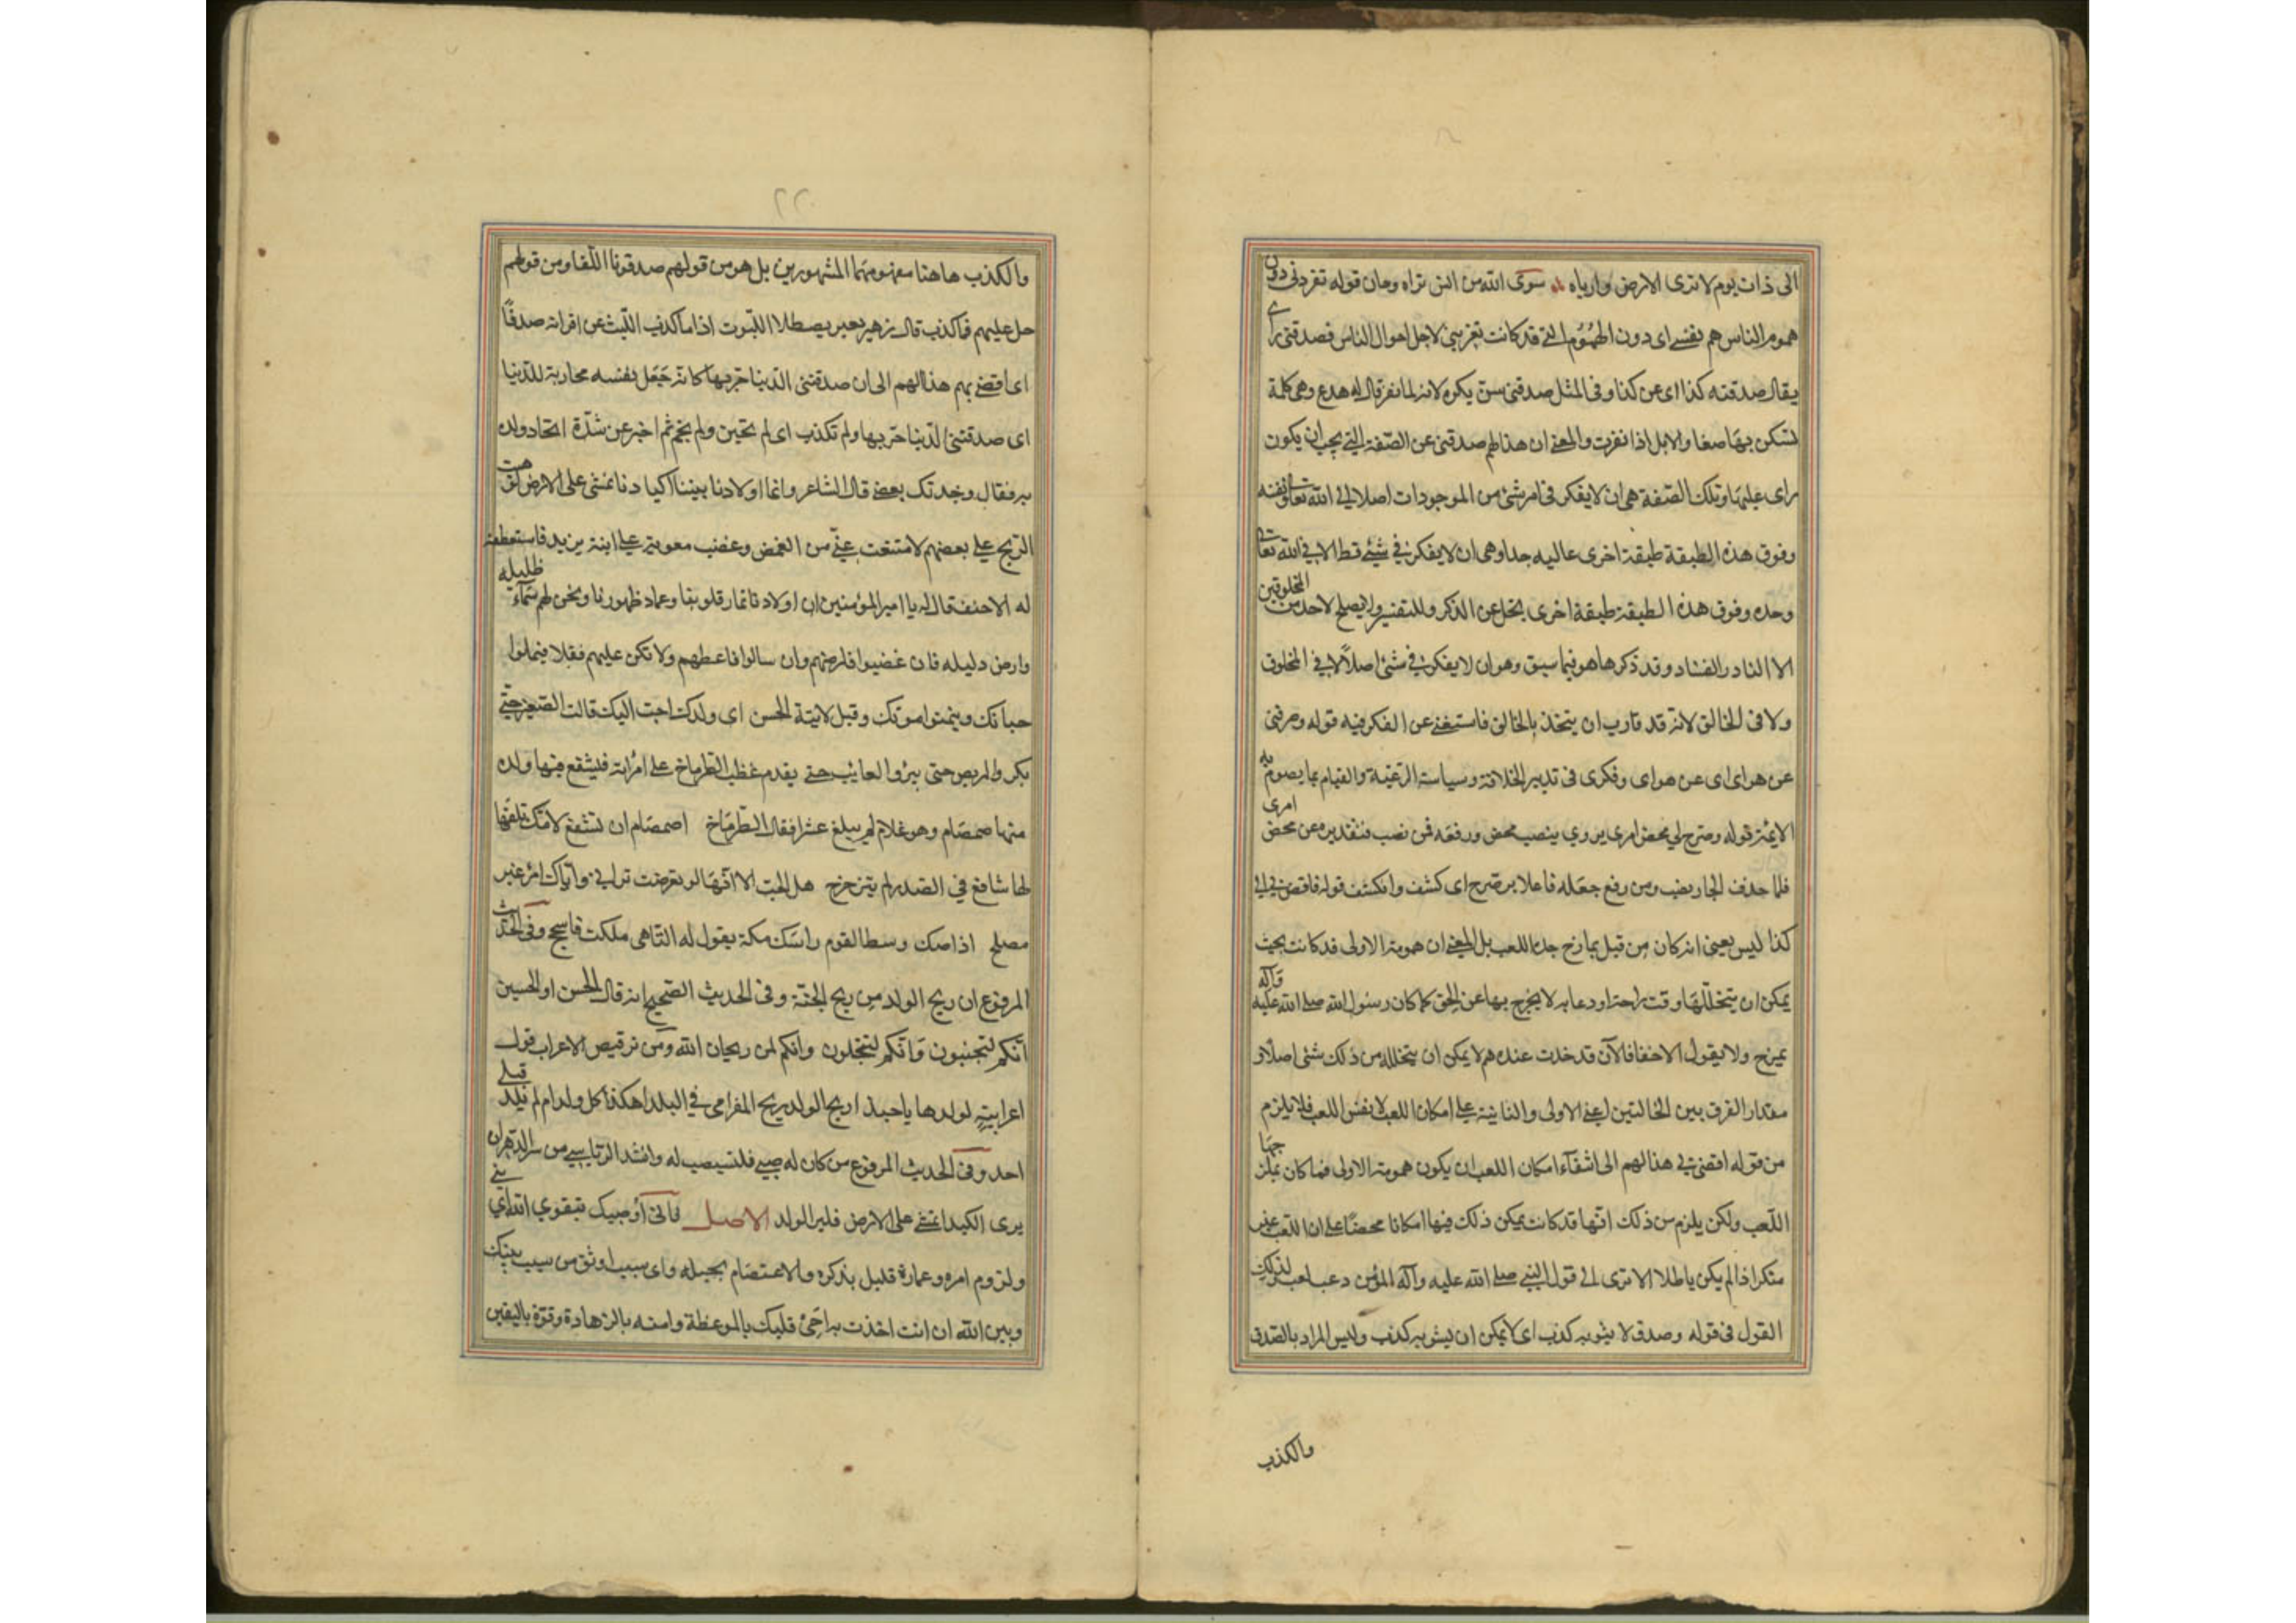 الى ذات يوم لا ترى الارض واربابه له سوى الله من انس تراه وجان قوله تفرد بى دون
هموم الناس هم نفسى اى دون الهموم التى قد كانت تعتريني لاجل احوال الناس فصدقنى راى
يقال صدقته كذا اى عن كذا وفى المثل صدقنى سن بكره لانه لما نفر قال له هدع وهى كلمة
تسكن بها صغار الابل اذا نفرت والمعنى ان هذا الهم صدقنى عن الصفة التى يجب ان يكون
راى عليها وتلك الصفة هى ان لا يفكر فى امر شئ من الموجودات اصلا الا الله تعالى ونفسه
وفوق هذه الطبقة طبقة اخرى عاليه جدا وهى ان لا يفكر فى شئ قط الا فى الله تعالى
وحده وفوق هذه الطبقة طبقة اخرى تجل عن الذكر والتفسير ولا يصلح لاحد من المخلوقين
الا النادر الشاذ وقد ذكرها هو فيما سبق وهو ان لا يفكر فى شئ اصلا لا فى المخلوق
ولا فى الخالق لانه قد قارب ان يتحد بالخالق فاستغنى عن الفكر فيه قوله وصرفنى
عن هواى اى عن هواى وفكرى فى تدبير الخلافة وسياسة الرعية والقيام بما يصوم به
الايمة قوله وصرح لى محض امرى يروى بنصب محض ورفعه فمن نصب فتقديره عن محض امرى
فلما حذف الجار نصب ومن رفع جعله فاعلا صرح اى كشف وانكشف قوله فافضى بى الى
كذا ليس بعنى انه كان من قبل يمازج جده اللعب بل المعنى ان همومه الاولى قد كانت بحيث
يمكن ان يتخللها وقت راحة او دعابه لا يخرج بها عن الحق كما كان رسول الله صلى الله عليه وآله
يمزح ولا يقول الا حقا فالآن قد حدث عنده هم لا يمكن ان يتخلله من ذلك شئ اصلا و
مقدار الفرق بين الحالتين اعنى الاولى والثانية على امكان اللعب لا نفس اللعب فلا يلزم
من قوله افضى بى هذا الهم الى انتفآء امكان اللعب ان يكون همومه الاولى فما كان يمازجها
اللعب ولكن يلزم من ذلك انها قد كانت يمكن ذلك فيها امكانا محضا على ان اللعب غير
منكر اذا لم يكن باطلا الا ترى الى قول النبى صلى الله عليه وآله المؤمن دعب لعب لذلك
القول فى قوله وصدق لا يشوبه كذب اى لا يمكن ان يشوبه كذب وليس المراد بالصدق
والكذب
٢٢
والكذب هاهنا مفهومهما المشهورين بل هو من قولهم صدقونا اللقا ومن قولهم
حمل عليهم فما كذب قال زهير بعير يصطلا الليوت اذا ما كذب الليث عن اقرانه صدقا
اى افضى بهم هذا الهم الى ان صدقتنى الدنيا حربها كانه جعل نفسه محاربة للدنيا
اى صدقتنى الدنيا حربها ولم تكذب اى لم تجبن ولم تخم ثم اخبر عن شدة اتحاد ولده
به فقال وجدتك بعضى قال الشاعر وانما اولادنا بيننا اكبادنا تمشى على الارض لو هبت
الريح على بعضهم لامتنعت عينى من الغمض وغضب معوية على ابنه يزيد فاستعطفه
له الاحنف قال له يا امير المؤمنين ان اولادنا ثمار قلوبنا وعماد ظهورنا ونحن لهم سمآء ظليله
وارض دليله فان غضبوا فارضهم وان سالوا فاعطهم ولا تكن عليهم قفلا فيملوا
حياتك ويتمنوا موتك وقيل لابنة الحسن اى ولدك احب اليك قالت الصغير حتى
يكبر والمريض حتى يبرؤ والغايب حتى يقدم غضب الطرماخ على امراته فيشفع فيها ولده
منها صمصام وهو غلام لم يبلغ عشرا فقال الطرماخ اصمصام ان تشفع لامك تلقها
لها شافع فى الصدر لم يتزحزح هل الحب الا انها لو تعرضت
مصلح اذا صك وسط القوم راسك صكة يقول له الناهى ملكت فاسجح وفى الحديث
المرفوع ان ريح الولد من ريح الجنة وفى الحديث الصحيح انه قال للحسن او الحسين
انكم لتجبنون وانكم لتبخلون وانكم لمن ريحان الله ومن ترقيص الاعراب قول
اعرابية لولدها يا حبذا ريح الولد ريح الخزامى فى البلد اهكذا كل ولد ام لم يلد قبلى
احد وفى الحديث المرفوع من كان له صبى فليستصب له وانشد الرياشى من سره الدهر ان
يرى الكبد تمشى على الارض فلير الولد الاصل فانى اوصيك بتقوى الله اى بنى
ولزوم امره وعمارة قلبك بذكره والاعتصام بحبله واى سبب اوثق من سبب بينك
وبين الله ان انت اخذت به احى قلبك بالموعظة وامته بالزهادة وقوه باليقين